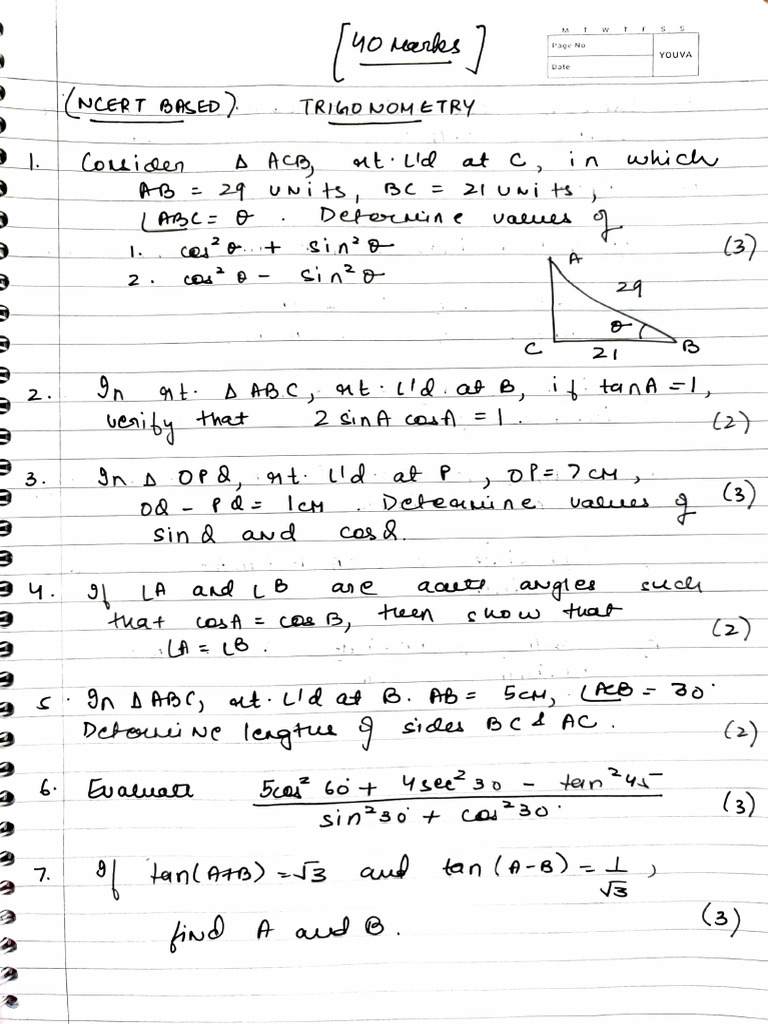 [40 Marks]
M T W T F S S
Page No
YOUVA
Date
(NCERT BASED) TRIGONOMETRY
1. Consider Δ ACB, rt. L'd at C, in which
AB = 29 units, BC = 21 units,
∠ABC = θ. Determine values of
1. cos²θ + sin²θ (3)
2. cos²θ - sin²θ
A
29
θ
C 21 B
2. In rt. Δ ABC, rt. L'd at B, if tanA = 1,
verify that 2 sinA cosA = 1. (2)
3. In Δ OPQ, rt. L'd at P, OP = 7 cm,
OQ - PQ = 1 cm. Determine values of (3)
sin Q and cos Q.
4. If ∠A and ∠B are acute angles such
that cosA = cos B, then show that
∠A = ∠B. (2)
5. In Δ ABC, rt. L'd at B. AB = 5cm, ∠ACB = 30°
Determine lengths of sides BC & AC. (2)
6. Evaluate 5cos² 60° + 4sec² 30 - tan² 45
sin² 30° + cos² 30° (3)
7. If tan(A+B) = √3 and tan (A-B) = 1/√3,
find A and B. (3)